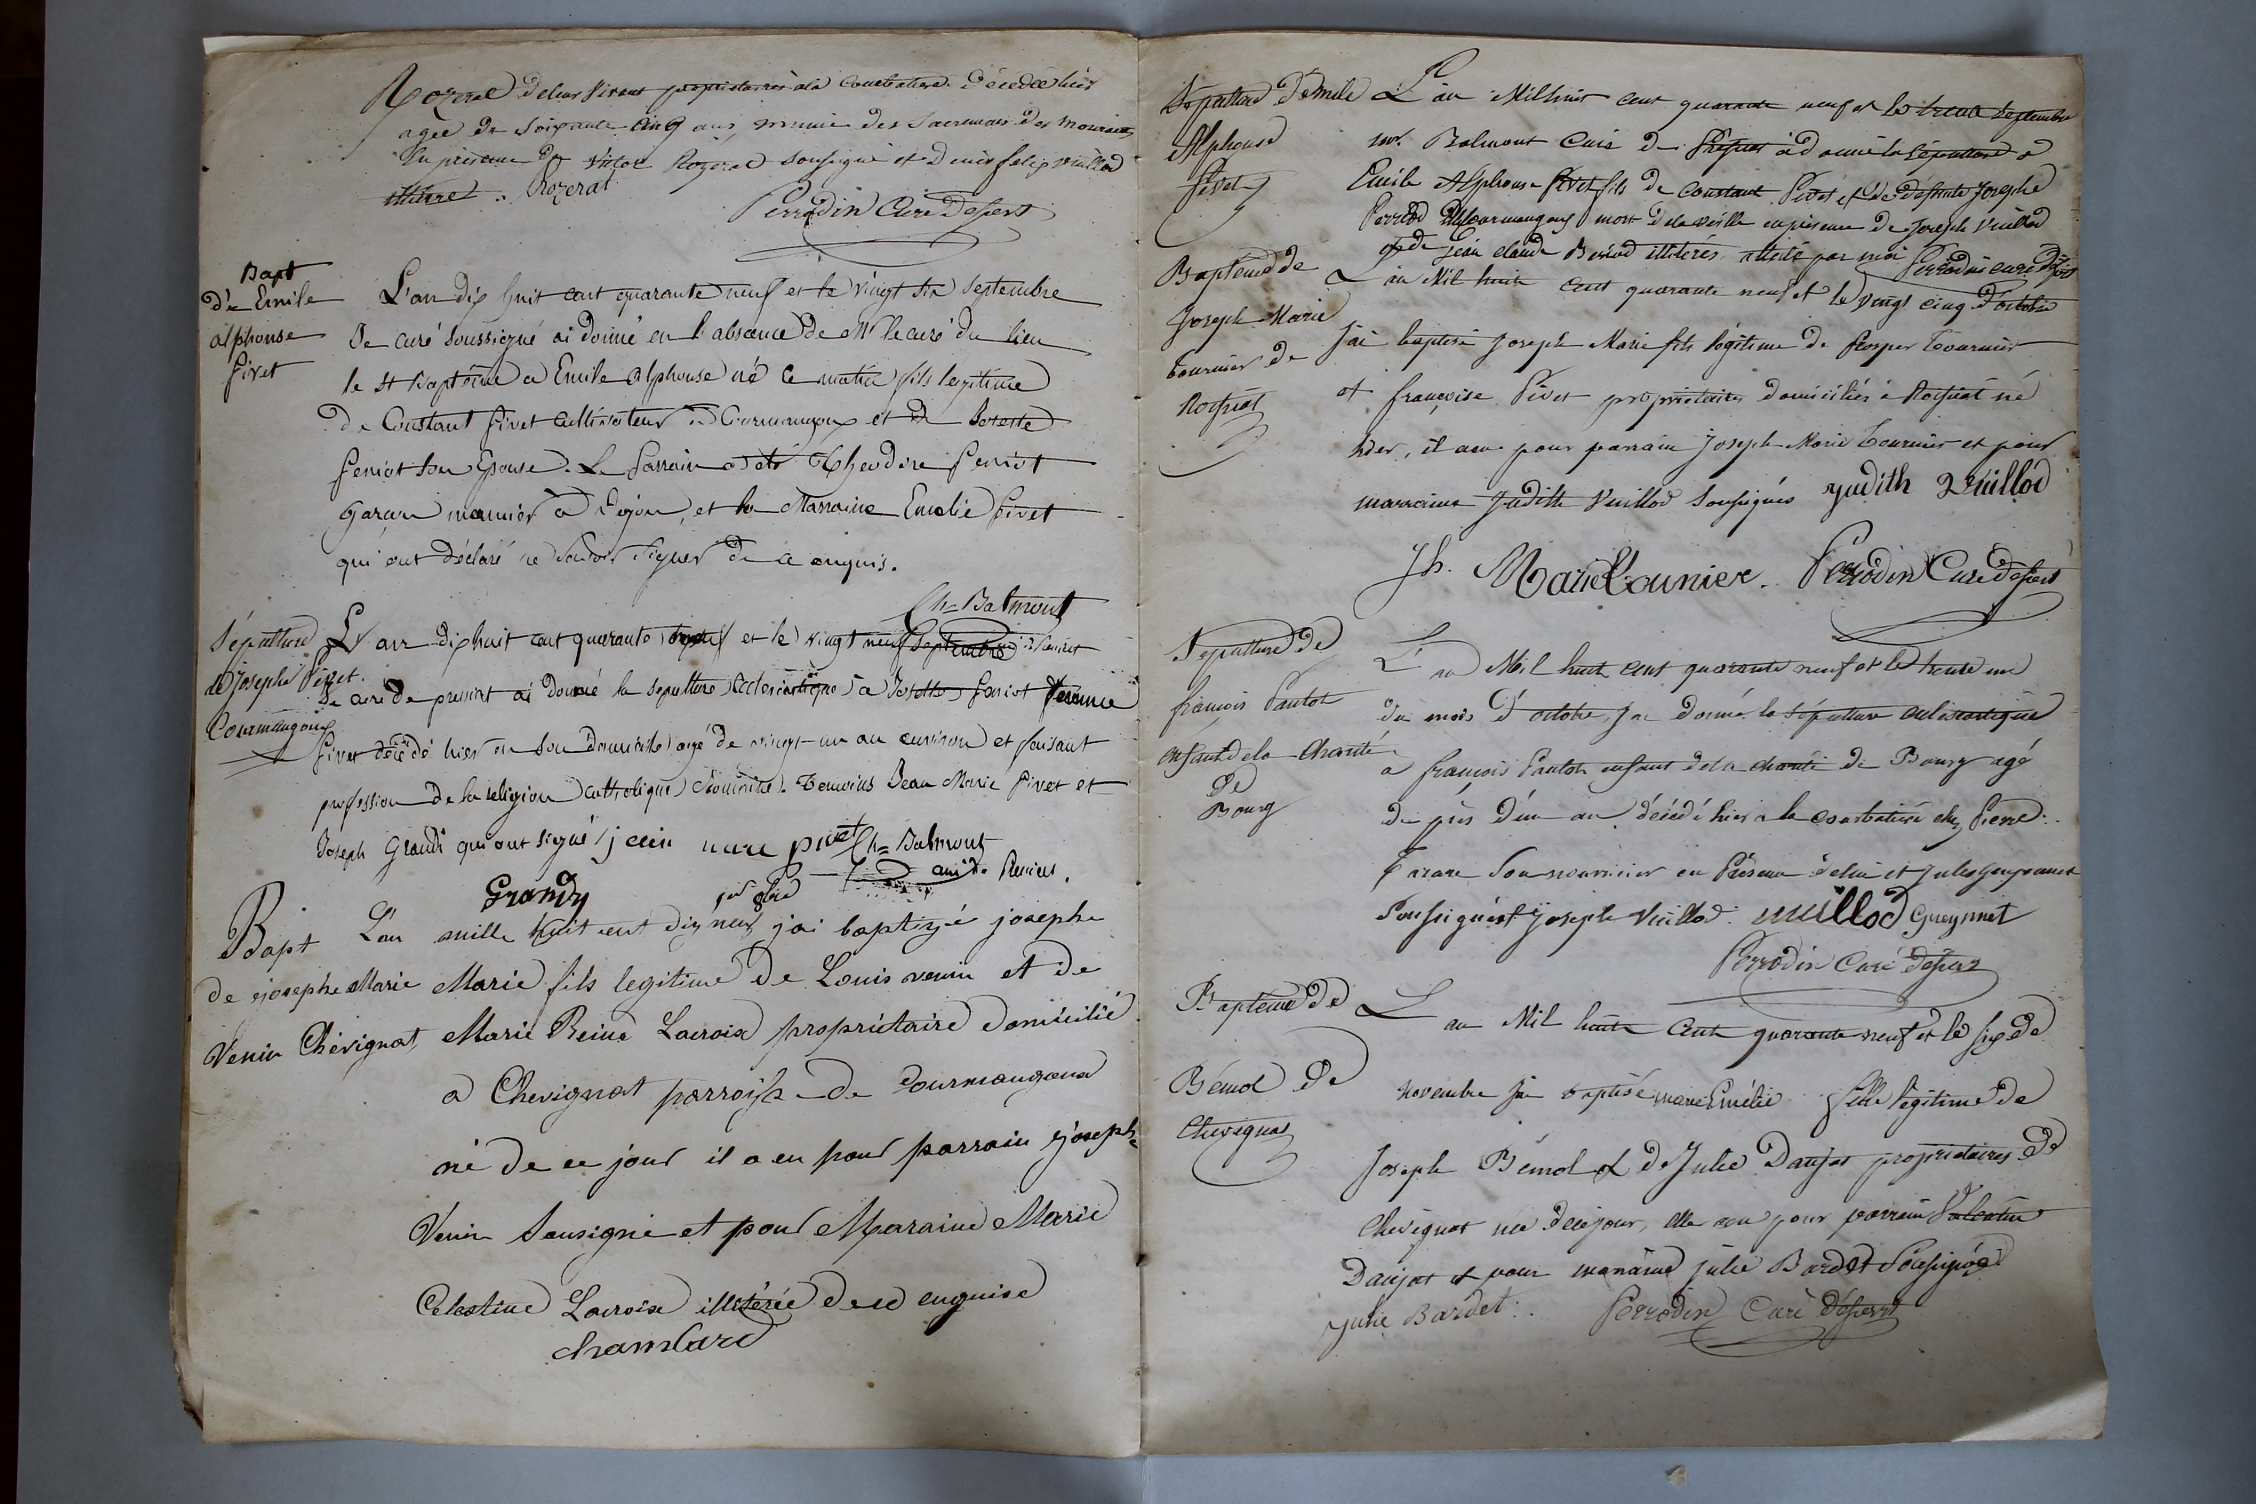 Rozerat de leur vivant propriétaires à la Courbatiere. Décédée hier
agée de soixante cinq ans munie des Sacremens des mourants
En présence de victor Rozerat soussigné et Denis felix vuillod
illitéré. Rozerat
Perrodin Curé Desserv
Bapt
d'e Emile
alphonse
pivet
L'an dix huit cent quarante neuf et le vingt six septembre
Je curé soussigné ai donné en l'absence de Mr le curé du lieu
le st Baptême a Emile alphouse né ce matin fils legitime
de Constant pivet cultivateur à Courmangoux et de Josette
feriot son Epouse. Le Parrain a été Théodore feriot
garçon meunier à Dijon, et la Marraine Emelie pivet
qui ont déclaré ne savoir signer de ce enquis.
Ch= Balmont
Sépulture
de Josephe Pivet.
Courmangoux
L'an dix huit cent quarante neuf et le vingt neuf septembre
Je curé de pressiat ai donné la sepulture Ecclesiastique a Josette feriot femme
pivet décédé hier en son domicile agé de vingt-un an environ et faisant
profession de la religion Catholique Romaine. Temoins Jean Marie pivet et
Joseph Grandi qui ont signé / jean marie pivet Ch= Balmont
Grandy curé de Pressiat.
Bapt
de josephe Marie
Venin Chévignat
L'an mille huit cent dix neuf j'ai baptizé josephe
Marie fils legitime de Louis venin et de
Marie Reine Lacroix propriétaire domicilié
a Chevignat parroisse de Courmangoux
né de ce jour il a eu pour parrain joseph
Vénin Sousigné et pour Maraine Marie
Celestine Lacroix illitérée de ce enquise
chambard
Sépulture d'Emile
Alphonse
Pivet
L'an Mil huit cent quarante neuf et le trente septembre
mr. Balmont Curé de Préssiat à donné la Sépulture à
Emile Alphonse Pivet fils de Constant Pivet et de défunte Josephe
Perriod de Courmangoux mort de la veille en présence de Joseph Vuillod
et de Jean claude Bériod illitérés, attesté par moi Perrodin curé
Baptême de
Joseph Marie
Tournier de
Roissiat
L'an Mil huit cent quarante neuf et le vingt cinq d'octobre
J'ai baptisé Joseph Marie fils légitime de Prosper Tournier
et françoise Pivet propriétaires domiciliés à Roissiat né
hier, il a eu pour parrain Joseph Marie Tournier et pour
marraine Judith Vuillod Soussignés judith Vuillod
Jh. Marie Tounier. Perrodin Curé desserv
Sépulture de
françois Pautot
enfant de la Charité
de
Bourg
L'an Mil huit cent quarante neuf et le trente un
du mois d'octobre, j'ai donné la sépulture eclésiastique
à françois Pautot enfant de la charité de Bourg agé
de près d'un an décédé hier à la Courbatière chez Pierre
Tarare Son nourricier en Présence de lui et jules gueynnet
Soussignés et Joseph Vuillod. vuillod Gueynnet
Perrodin Curé desserv
Baptême de
Bémol de
Chevignat
L'an Mil huit Cent quarante neuf et le six de
novembre J'ai baptisé marie Emélie fille légitime de
Joseph Bémol et de Julie Daujat propriétaires de
Chevignat née de ce jour, elle a eu pour parrain Valentin
Daujat et pour maraine julie Bardet Soussignée
julie Bardet. Perrodin Curé desserv